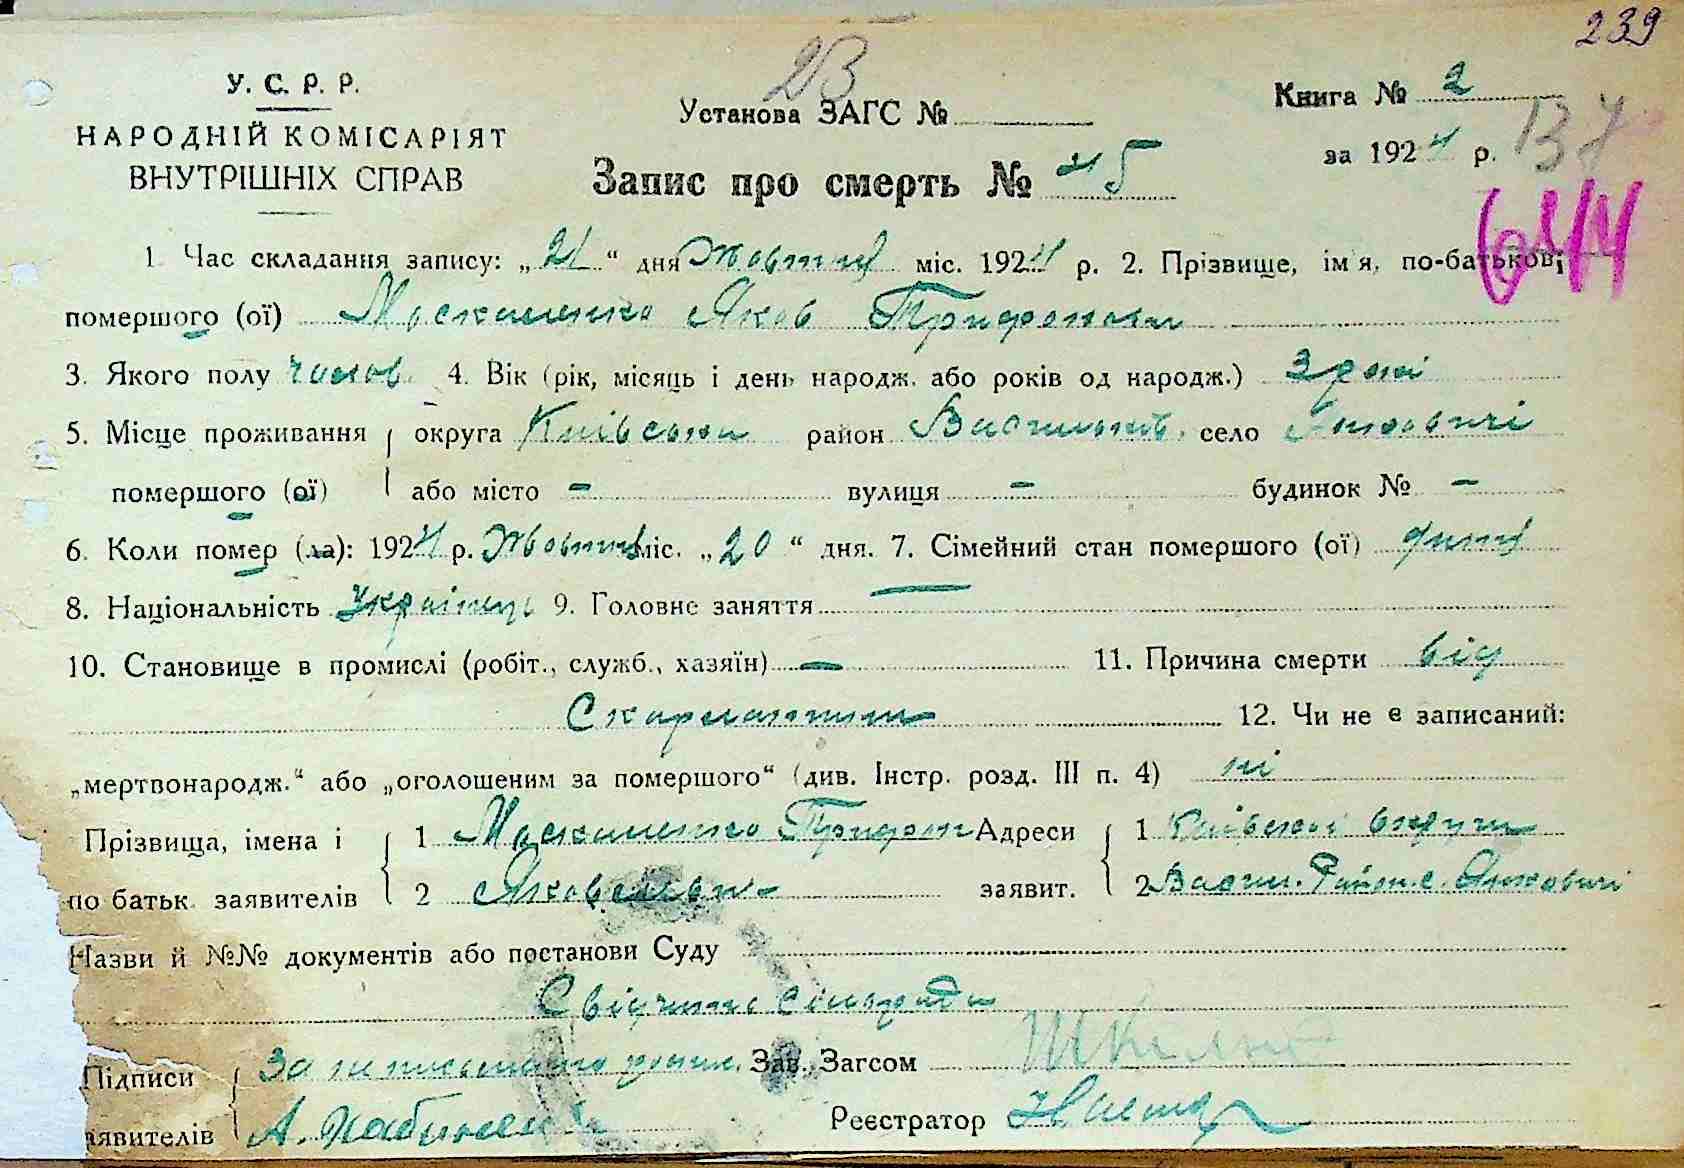 239
23
У. С. Р. Р.
НАРОДНІЙ КОМІСАРІЯТ
ВНУТРІШНІХ СПРАВ
Установа ЗАГС №
Книга № 2
за 1924 р.
137
Запис про смерть № 45
644
1. Час складання запису: „21“ дня Жовтня міс. 1924 р. 2. Прізвище, ім'я, по-батькові
помершого (ої) Москаленко Яков Трифонов
3. Якого полу чолов. 4. Вік (рік, місяць і день народж. або років од народж.) 3 дні
5. Місце проживання округа Київська район Васильків. село Янковичі
помершого (ої) або місто - вулиця - будинок № -
6. Коли помер (ла): 1924 р. Жовтня міс. „20“ дня. 7. Сімейний стан помершого (ої)
8. Національність Українець 9. Головне заняття —
10. Становище в промислі (робіт., служб., хазяїн) — 11. Причина смерти від
Скарлатини 12. Чи не є записаний:
„мертвонародж.“ або „оголошеним за помершого“ (див. Інстр. розд. III п. 4) ні
Прізвища, імена і 1 Москаленко Трифон Адреси 1 Київської округи
по батьк. заявителів 2 заявит. 2 Васил. Район. с. Янковичі
Назви й №№ документів або постанови Суду
сільради
Підписи За Зав. Загсом
аявителів А. Реєстратор